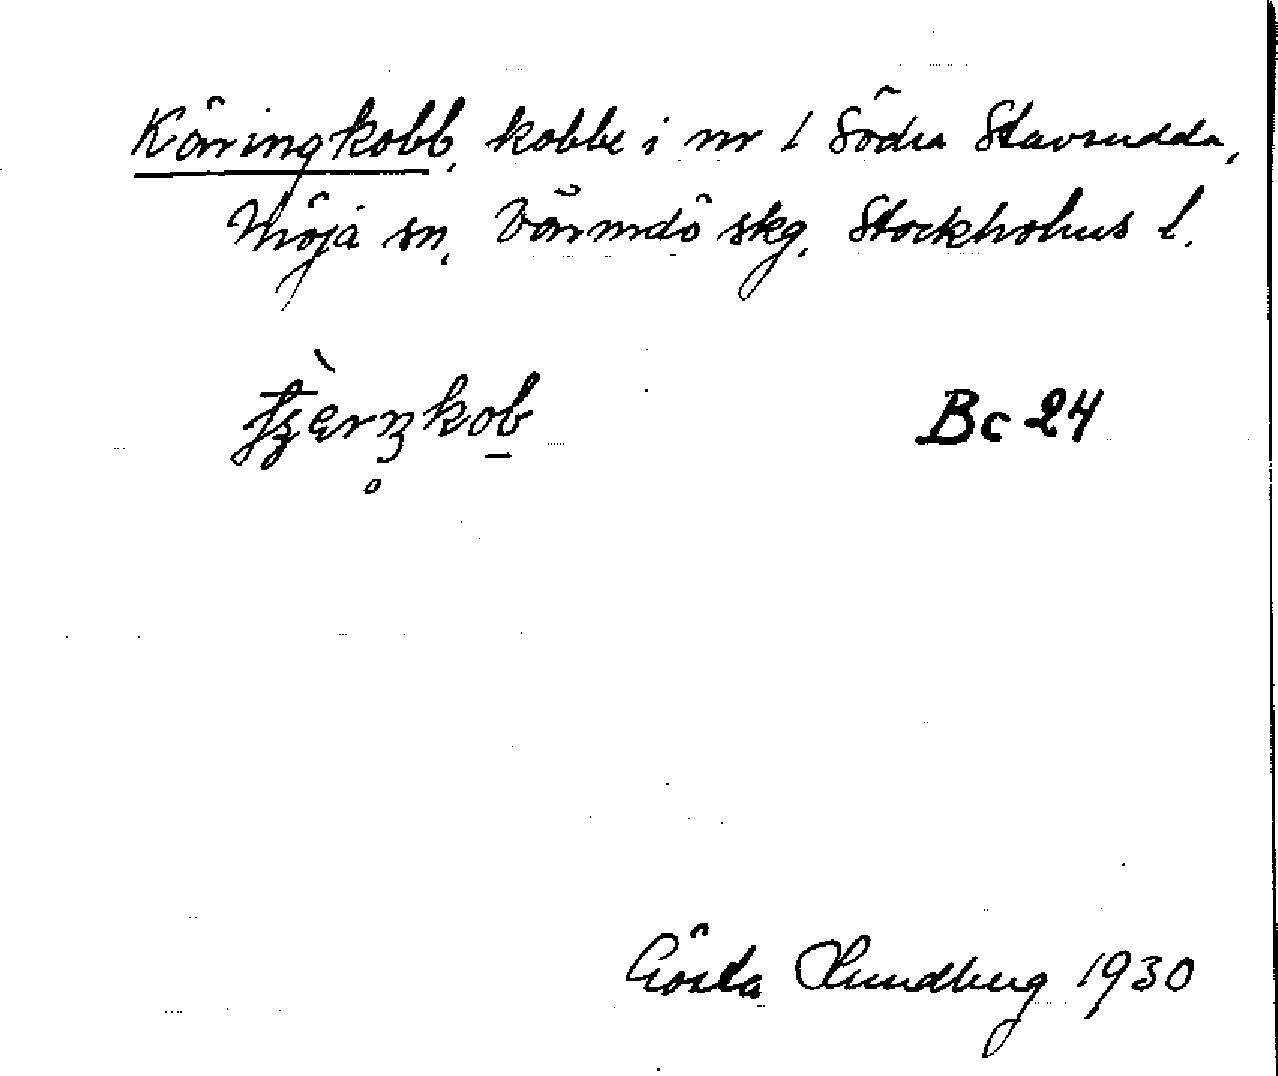 Käringkobb, kobbe i nr 1 Södra Stavsudda,
Möja sn, Värmdö skg, Stockholms l.
Bc 24
Gösta Lundberg 1930